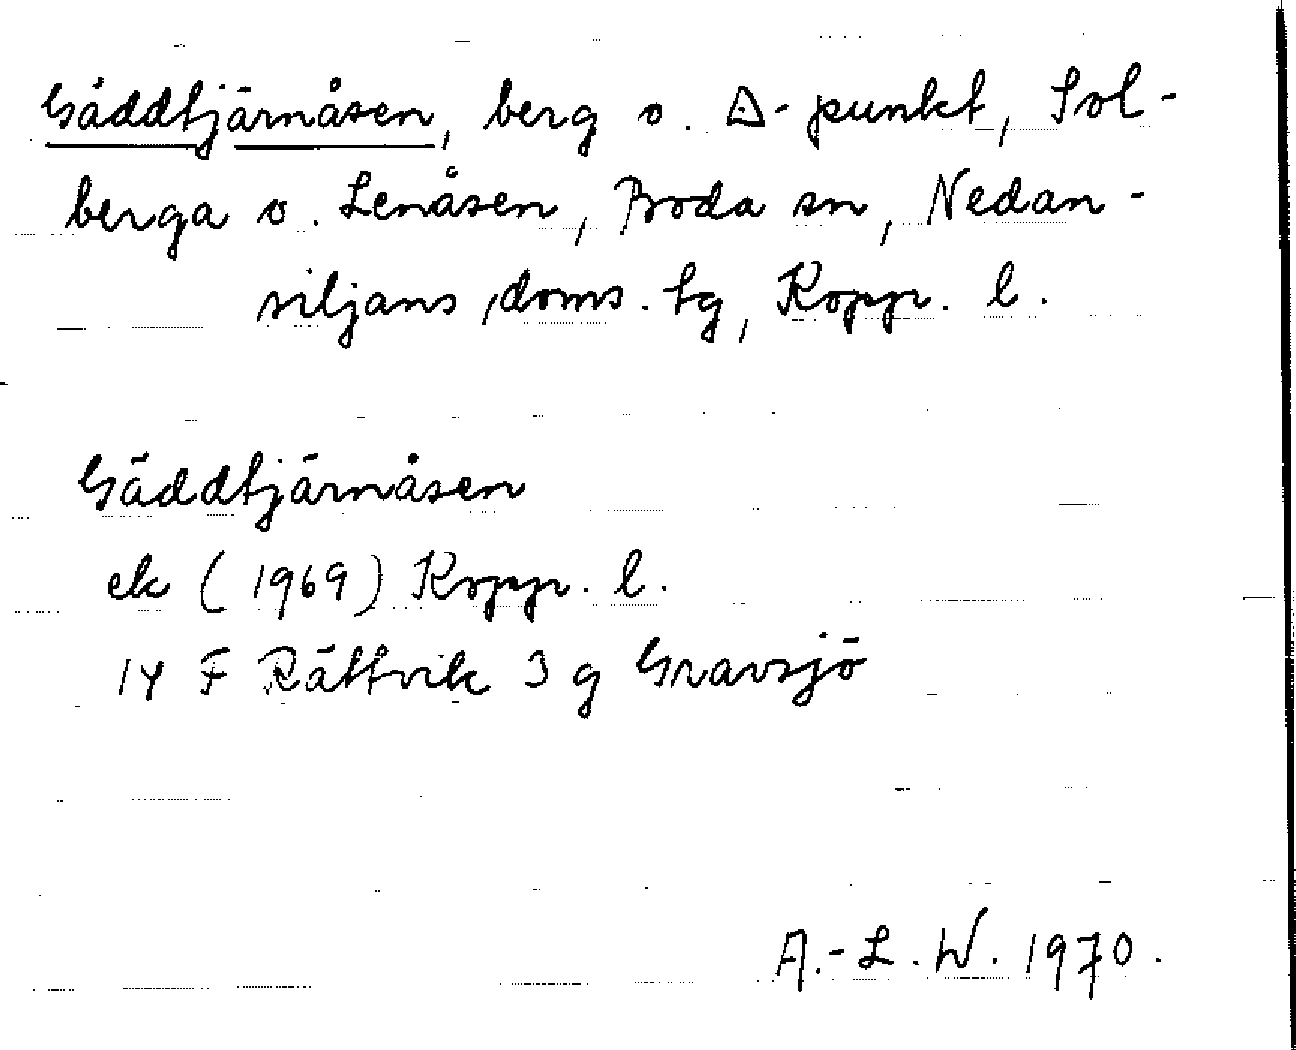 Gäddtjärnåsen, berg o. △-punkt, Sol-
berga o. Lenåsen, Boda sn, Nedan-
siljans doms. tg, Koppr. l.
Gäddtjärnåsen
ek (1969) Koppr. l.
14 F Rättvik 3 g Gravsjö
A.-L. W. 1970.